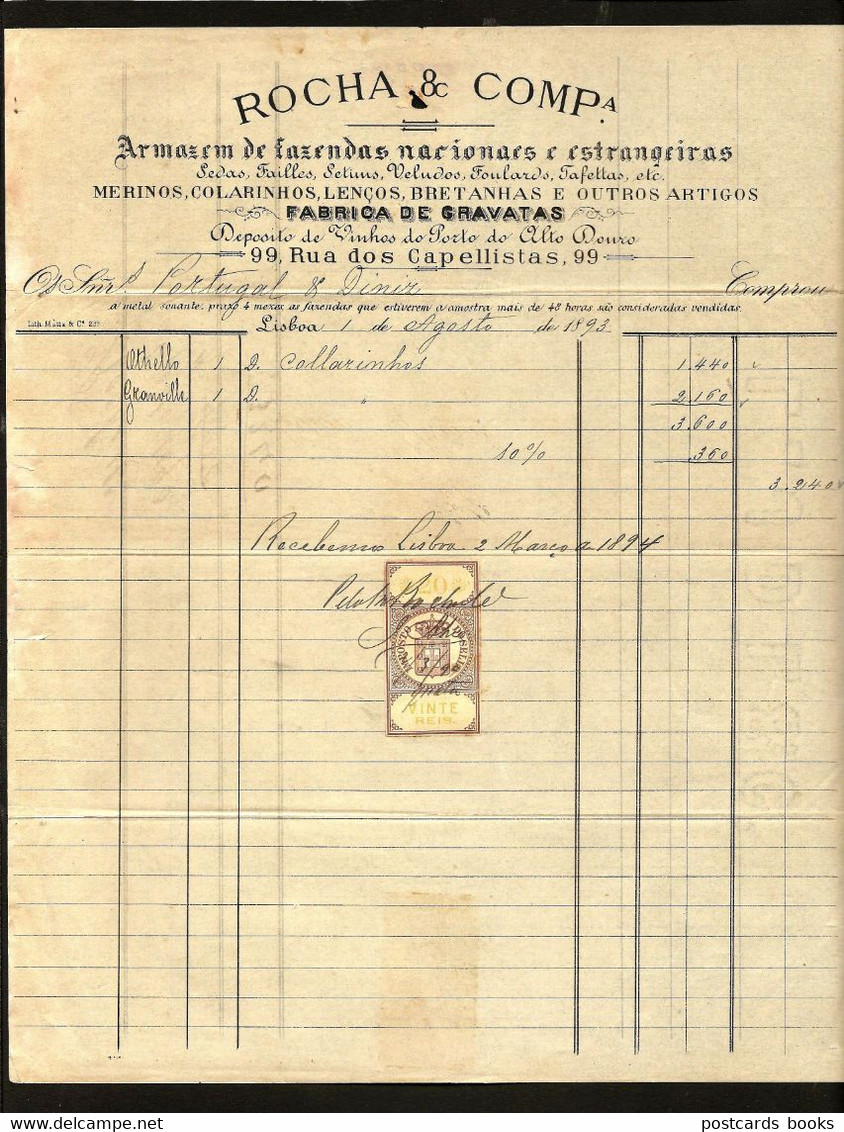 ROCHA & COMPA
Armazem de fazendas nacionaes e estrangeiras
Sedas, Failles, Setins, Veludos, Foulards, Tafettas, etc.
MERINOS, COLARINHOS, LENÇOS, BRETANHAS E OUTROS ARTIGOS
FABRICA DE GRAVATAS
Deposito de Vinhos do Porto do Alto Douro
99, Rua dos Capellistas, 99
Os Snrs. Portugal & Diniz Comprou
a metal sonante: prazo 4 mezes as fazendas que estiverem a amostra mais de 48 horas são consideradas vendidas.
Lith. Matta & Cª
Lisboa 1 de Agosto de 1893
Othello 1 D. Collarinhos 1.440
Granville 1 D. " 2.160
3.600
10% .360
3.240
Recebemos Lisboa 2 Março de 1894
20
IMPOSTO DO SELLO
VINTE
REIS.
postcards books